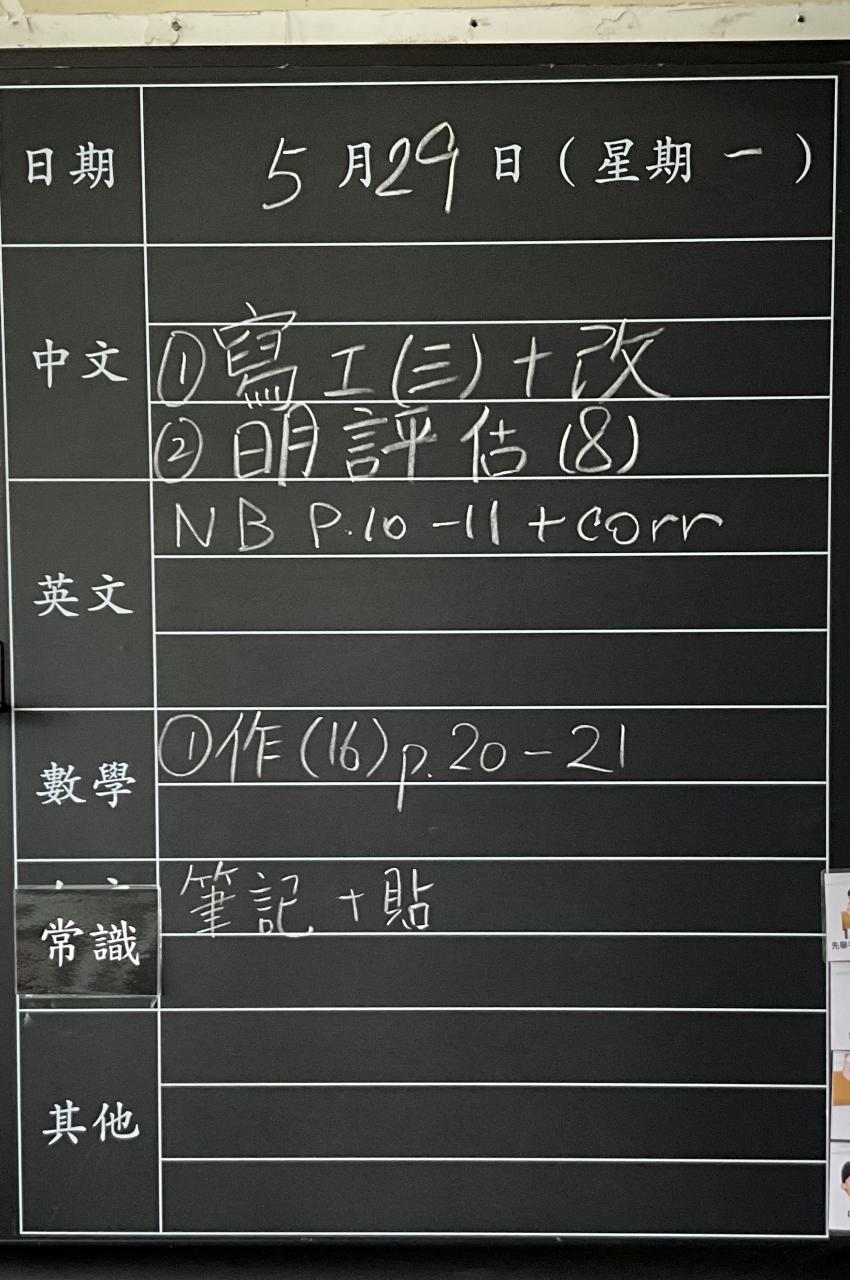 日期 5月29日（星期一）
中文
①寫工(三)+改
②明評估(8)
英文
NB P.10-11+corr
數學
①作(16)p.20-21
常識
筆記+貼
其他